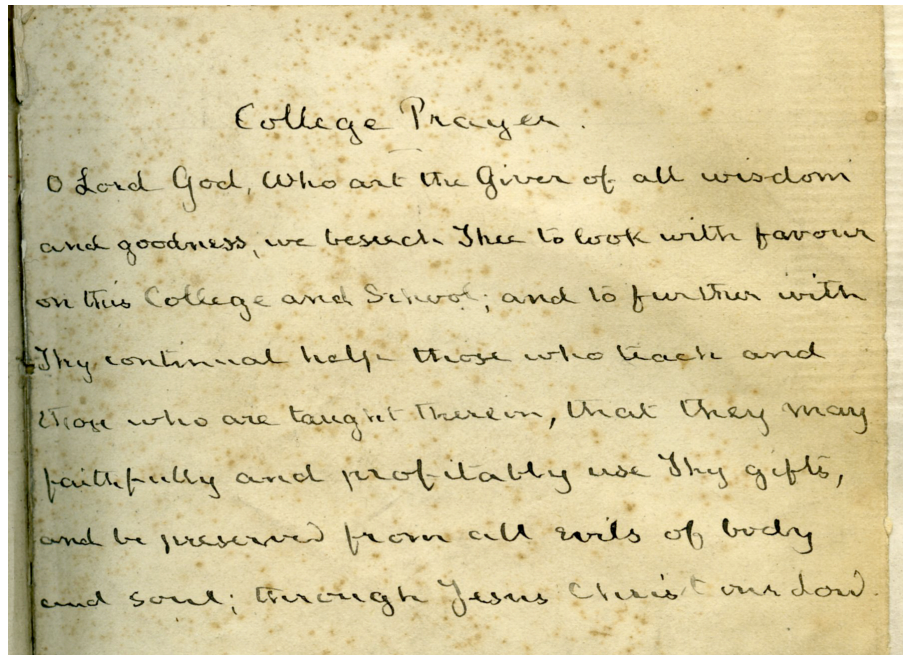 College Prayer.
O Lord God, Who art the Giver of all wisdom
and goodness, we beseech Thee to look with favour
on this College and School; and to further with
Thy continual help those who teach and
those who are taught therein, that they may
faithfully and profitably use Thy gifts,
and be preserved from all evils of body
and soul; through Jesus Christ our Lord.